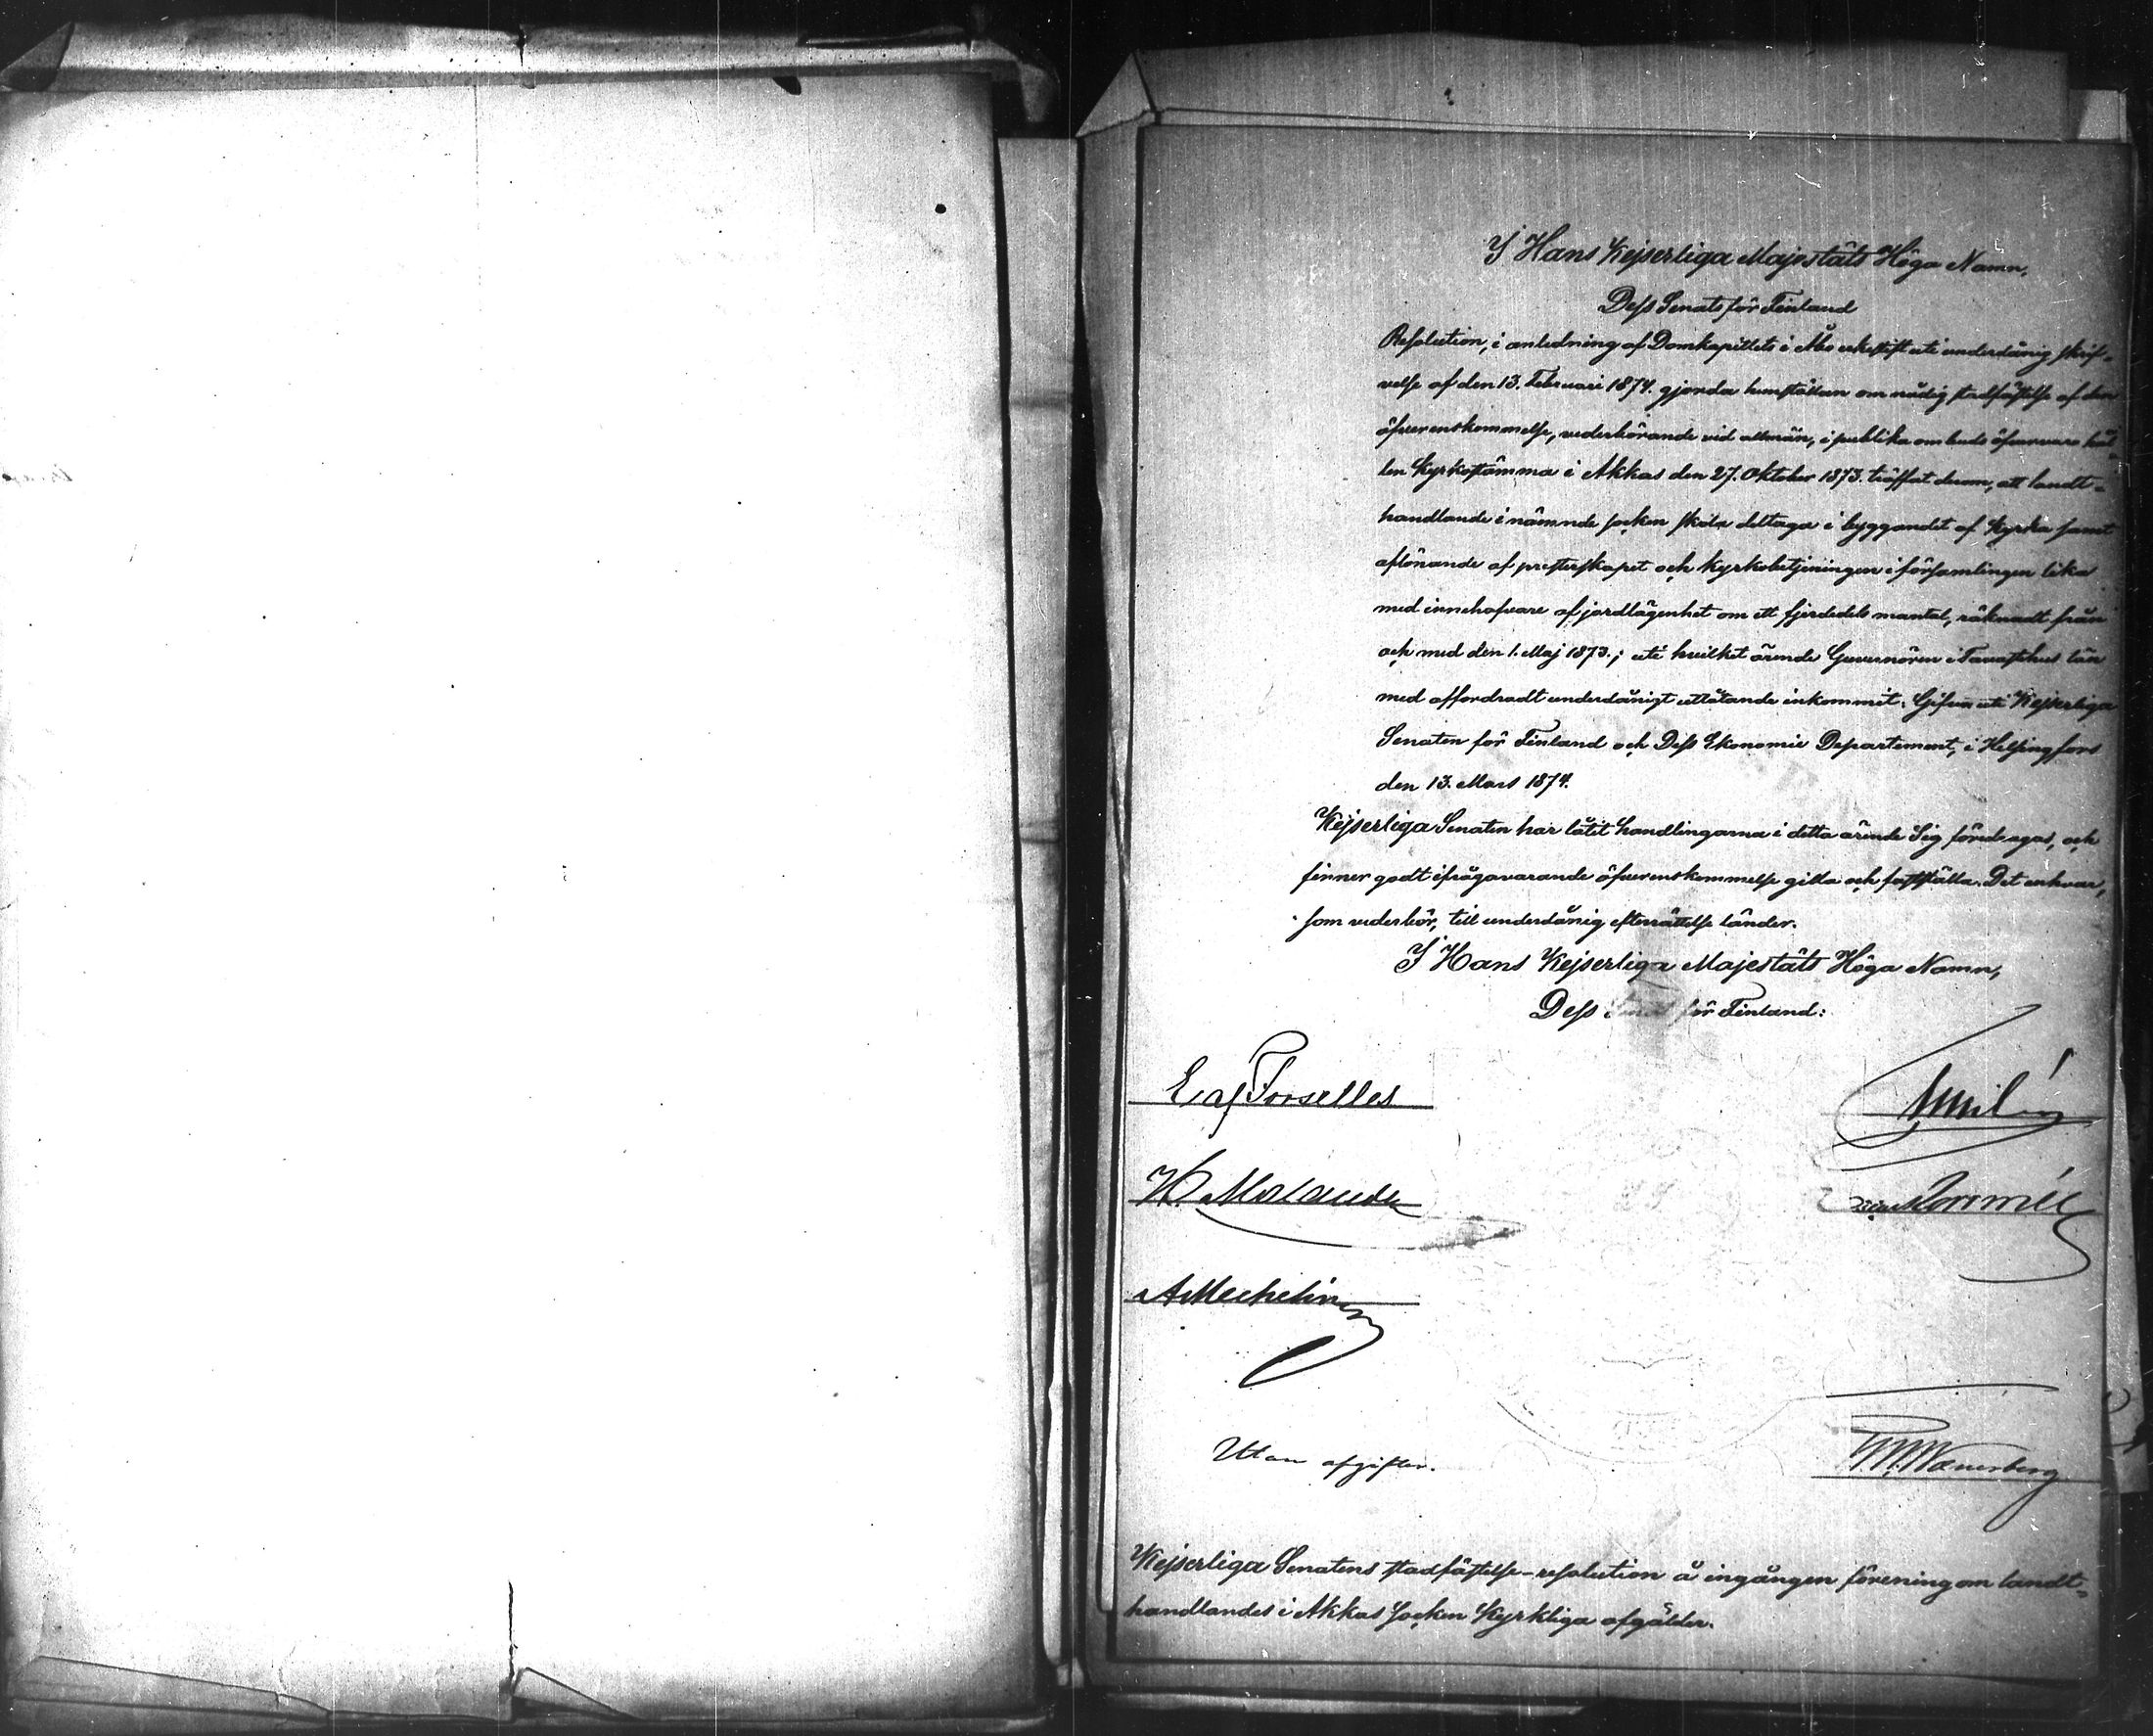 I Hans Kejserliga Majestäts Höga Namn,
Dess Senats för Finland
Resolution, i anledning af Domkapitlets i Åbo erkestift uti underdånig skrif-
velse af den 13. Februari 1874. gjorda hemställan om nådig stadfästelse af den
öfverenskommelse, vederbörande vid allmän, i publika ombuds öfvervaro hål-
len Kyrkostämma i Akkas den 27. Oktober 1873. träffat derom, att landt-
handlande i nämnde socken skola deltaga i byggandet af Kyrka samt
aflönande af presterskapet och Kyrkobetjeningen i församlingen lika
med innehafvare af jordlägenhet om ett fjerdedels mantal, räknadt från
och med den 1. Maj 1873.; uti hvilket ärende Guvernören i Tavastehus län
med affordradt underdånigt utlåtande inkommit. Gifven uti Kejserliga
Senaten för Finland och Dess Ekonomie Departement, i Helsingfors
den 13. Mars 1874.
Kejserliga Senaten har låtit handlingarna i detta ärende Sig föredragas, och
finner godt ifrågavarande öfverenskommelse gilla och fastställa. Det enhvar,
som vederbör, till underdånig efterrättelse länder.
I Hans Kejserliga Majestäts Höga Namn,
Dess Senat för Finland:
E af Forselles
H. Molander
A Mechelin
Utan afgifter.
Kejserliga Senatens stadfästelse-resolution å ingången förening om landt-
handlandes i Akkas Socken Kyrkliga afgälder.